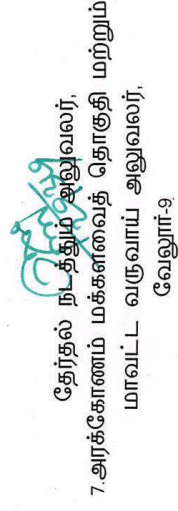 தேர்தல் நடத்தும் அலுவலர்,
7.அரக்கோணம் மக்களவைத் தொகுதி மற்றும்
மாவட்ட வருவாய் அலுவலர்,
வேலூர்-9